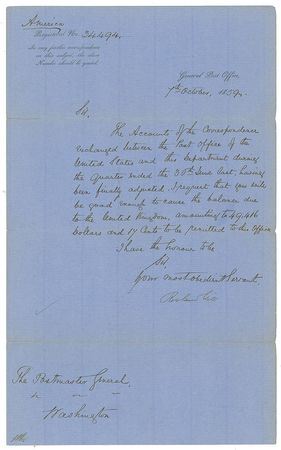 America
Registered No. 34494.
In any further correspondence
on this subject, the above
Number should be quoted.
General Post Office,
7th October, 1859.
Sir,
The Accounts of the Correspondence
exchanged between the Post Office of the
United States and this Department during
the Quarter ended the 30th June last, having
been finally adjusted, I request that you will
be good enough to cause the balance due
to the United Kingdom, amounting to 49,416
Dollars and 17 Cents to be remitted to this Office.
I have the honour to be
Sir,
Your most obedient Servant,
The Postmaster General,
Washington